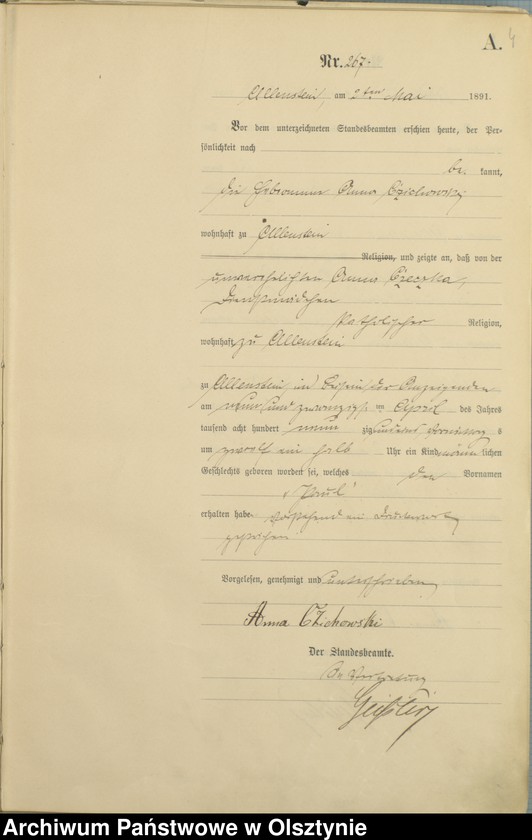 A. 4
Nr. 267.
Allenstein, am 2ten Mai 1891.
Vor dem unterzeichneten Standesbeamten erschien heute, der Per-
sönlichkeit nach
be kannt,
die Hebamme Anna Czichowski
wohnhaft zu Allenstein
Religion, und zeigte an, daß von der
unverehelichten Anna
Dienstmädchen
katholischer Religion,
wohnhaft zu Allenstein
zu Allenstein in Beisein der Anzeigenden
am neun und zwanzigsten April des Jahres
tausend acht hundert neunzig und eins Vormittags
um zwölf ein halb Uhr ein Kind männlichen
Geschlechts geboren worden sei, welches den Vornamen
Paul
erhalten habe. Vorstehend ein Druckwort
gestrichen
Vorgelesen, genehmigt und unterschrieben
Anna Czichowski
Der Standesbeamte.
In Vertretung
Archiwum Państwowe w Olsztynie